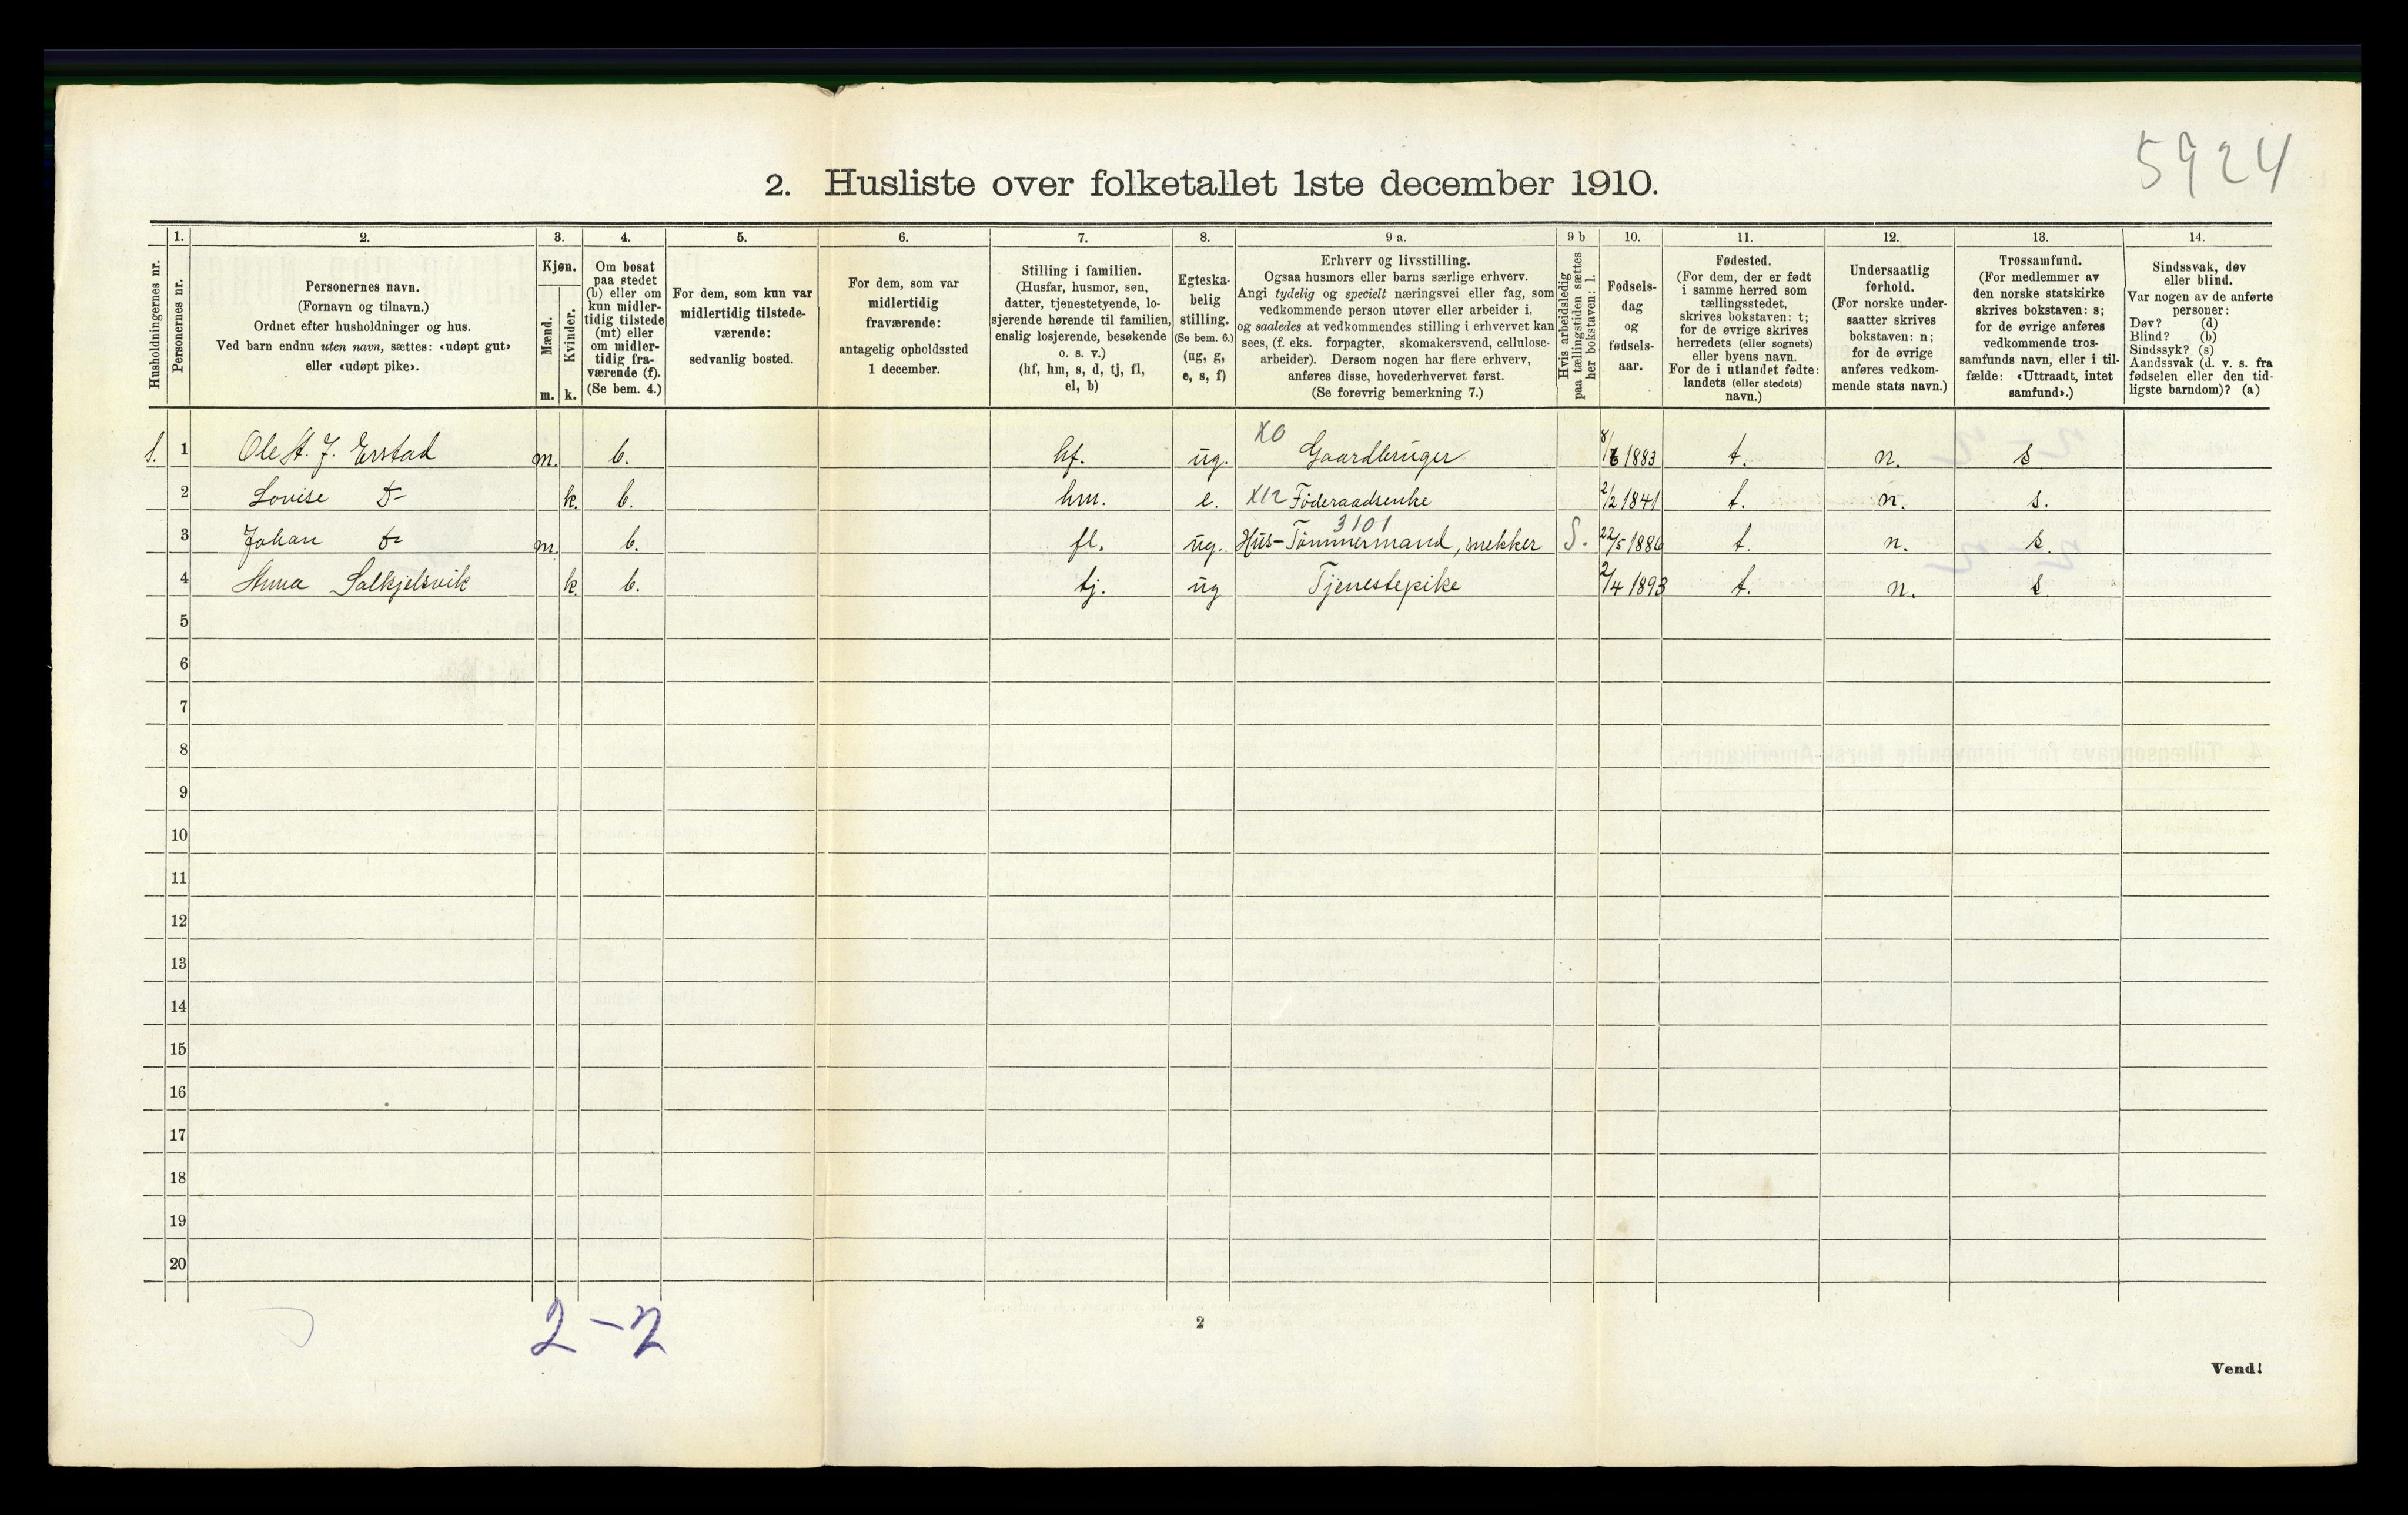 5924
2. Husliste over folketallet 1ste december 1910.
Husholdningernes nr.
1.
Personernes nr.
2.
Personernes navn.
(Fornavn og tilnavn.)
Ordnet efter husholdninger og hus.
Ved barn endnu uten navn, sættes: «udøpt gut»
eller «udøpt pike».
3.
Kjøn.
Mænd.
Kvinder.
m. k.
4.
Om bosat
paa stedet
(b) eller om
kun midler-
tidig tilstede
(mt) eller
om midler-
tidig fra-
værende (f).
(Se bem. 4.)
5.
For dem, som kun var
midlertidig tilstede-
værende:
sedvanlig bosted.
6.
For dem, som var
midlertidig
fraværende:
antagelig opholdssted
1 december.
7.
Stilling i familien.
(Husfar, husmor, søn,
datter, tjenestetyende, lo-
sjerende hørende til familien,
enslig losjerende, besøkende
o. s. v.)
(hf, hm, s, d, tj, fl,
el, b)
8.
Egteska-
belig
stilling.
(Se bem. 6.)
(ug, g,
e, s, f)
9 a.
Erhverv og livsstilling.
Ogsaa husmors eller barns særlige erhverv.
Angi tydelig og specielt næringsvei eller fag, som
vedkommende person utøver eller arbeider i,
og saaledes at vedkommendes stilling i erhvervet kan
sees, (f. eks. forpagter, skomakersvend, cellulose-
arbeider). Dersom nogen har flere erhverv,
anføres disse, hovederhvervet først.
(Se forøvrig bemerkning 7.)
9 b
Hvis arbeidsledig
paa tællingstiden sættes
her bokstaven: l.
10.
Fødsels-
dag
og
fødsels-
aar.
11.
Fødested.
(For dem, der er født
i samme herred som
tællingsstedet,
skrives bokstaven: t;
for de øvrige skrives
herredets (eller sognets)
eller byens navn.
For de i utlandet fødte:
landets (eller stedets)
navn.)
12.
Undersaatlig
forhold.
(For norske under-
saatter skrives
bokstaven: n;
for de øvrige
anføres vedkom-
mende stats navn.)
13.
Trossamfund.
(For medlemmer av
den norske statskirke
skrives bokstaven: s;
for de øvrige anføres
vedkommende tros-
samfunds navn, eller i til-
fælde: «Uttraadt, intet
samfund».)
14.
Sindssvak, døv
eller blind.
Var nogen av de anførte
personer:
Døv? (d)
Blind? (b)
Sindssyk? (s)
Aandssvak (d. v. s. fra
fødselen eller den tid-
ligste barndom)? (a)
1. 1 Ole J. Erstad m. b. hf. ug. X0 Gaardbruger 1883 t. n. s
2 Lovise D- k. b. hm. e. X12 Føderaadsenke 2/2 1841 t. n. s.
3 Johan D- m. b. fl. ug. Hus-Tømmermand, snekker 3101 S. 22/5 1886 t. n. s.
4 Anna Salkjelsvik k. b. tj. ug Tjenestepike 2/4 1893 t. n. s.
5
6
7
8
9
10
11
12
13
14
15
16
17
18
19
20
2-2
2
Vend!